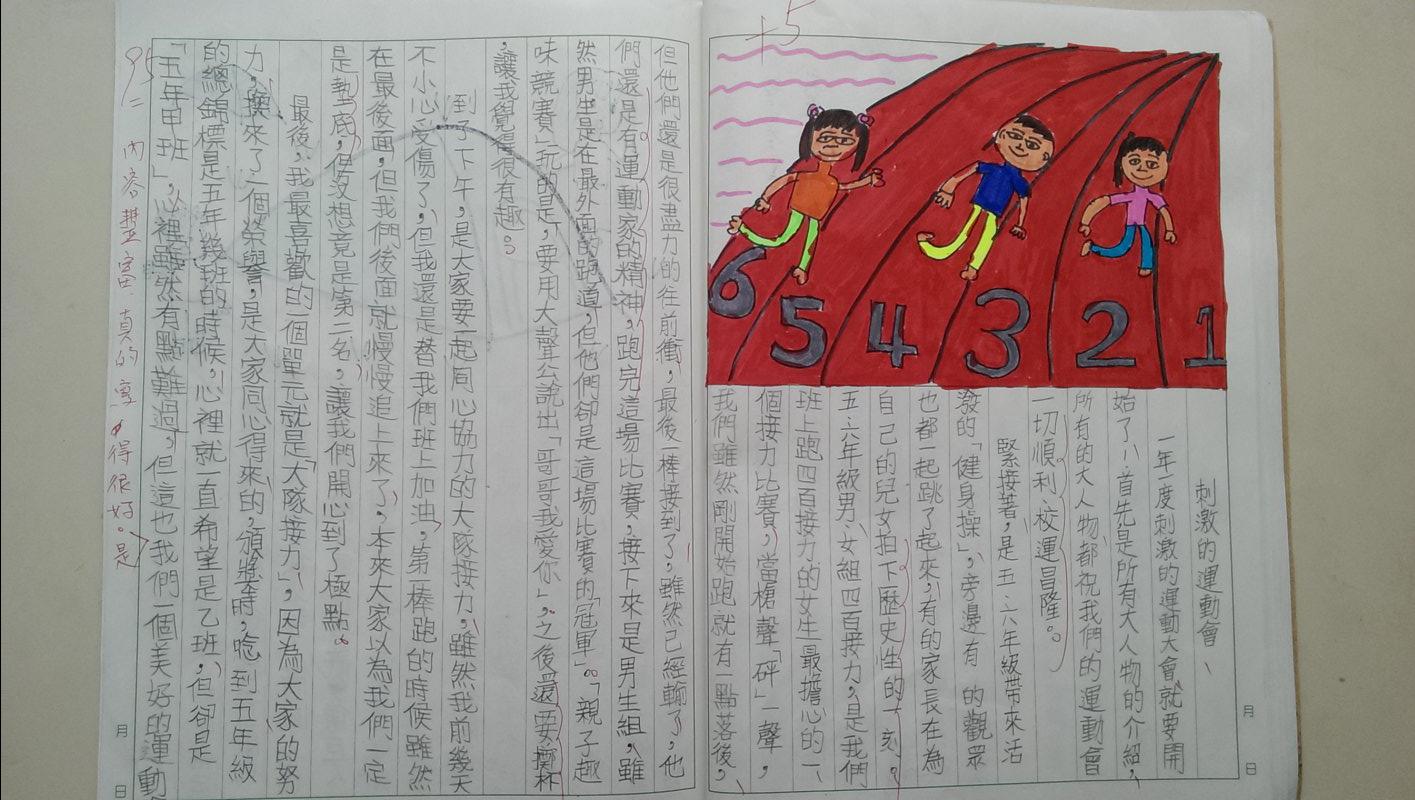 +5
6 5 4 3 2 1
刺激的運動會
一年度刺激的運動大會就要開
始了,首先是所有大人物的介紹,
所有的大人物都祝我們的運動會
一切順利校運昌隆。
緊接著,是五、六年級帶來活
潑的「健身操」,旁邊有的觀眾
也都一起跳了起來,有的家長在為
自己的兒女拍下歷史性的一刻。
五、六年級男、女組四百接力,是我們
班上跑四百接力的女生最擔心的一
個接力比賽,當槍聲「砰」一聲,
我們雖然剛開始跑就有一點落後,
但他們還是很盡力的往前衝,最後一棒接到了,雖然已經輸了,他
們還是有運動家的精神,跑完這場比賽,接下來是男生組,雖
然男生是在最外面的跑道,但他們卻是這場比賽的「冠軍」。「親子趣
味競賽」玩的是,要用大聲公說出「哥哥我愛你」,之後還要擲杯
,讓我覺得很有趣。
到了下午,是大家要一起同心協力的大隊接力,雖然我前幾天
不小心受傷了,但我還是替我們班上加油,第一棒跑的時候雖然
在最後面,但我們後面就慢慢追上來了,本來大家以為我們一定
是墊底,但沒想竟是第二名,讓我們開心到了極點。
最後,我最喜歡的一個單元就是「大隊接力」,因為大家的努
力,換來了一個榮譽,是大家同心得來的,頒獎時,唸到五年級
的總錦標是五年幾班的時候,心裡就一直希望是乙班,但卻是
「五年甲班」,心裡雖然有點難過,但這也我們一個美好的運動
95 內容豐富.真的寫得很好。是
月 日
月 日